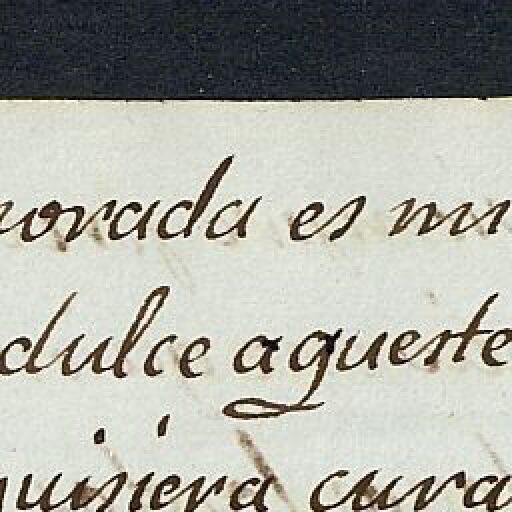 morada es mu
dulce aqueste
quisiera cura